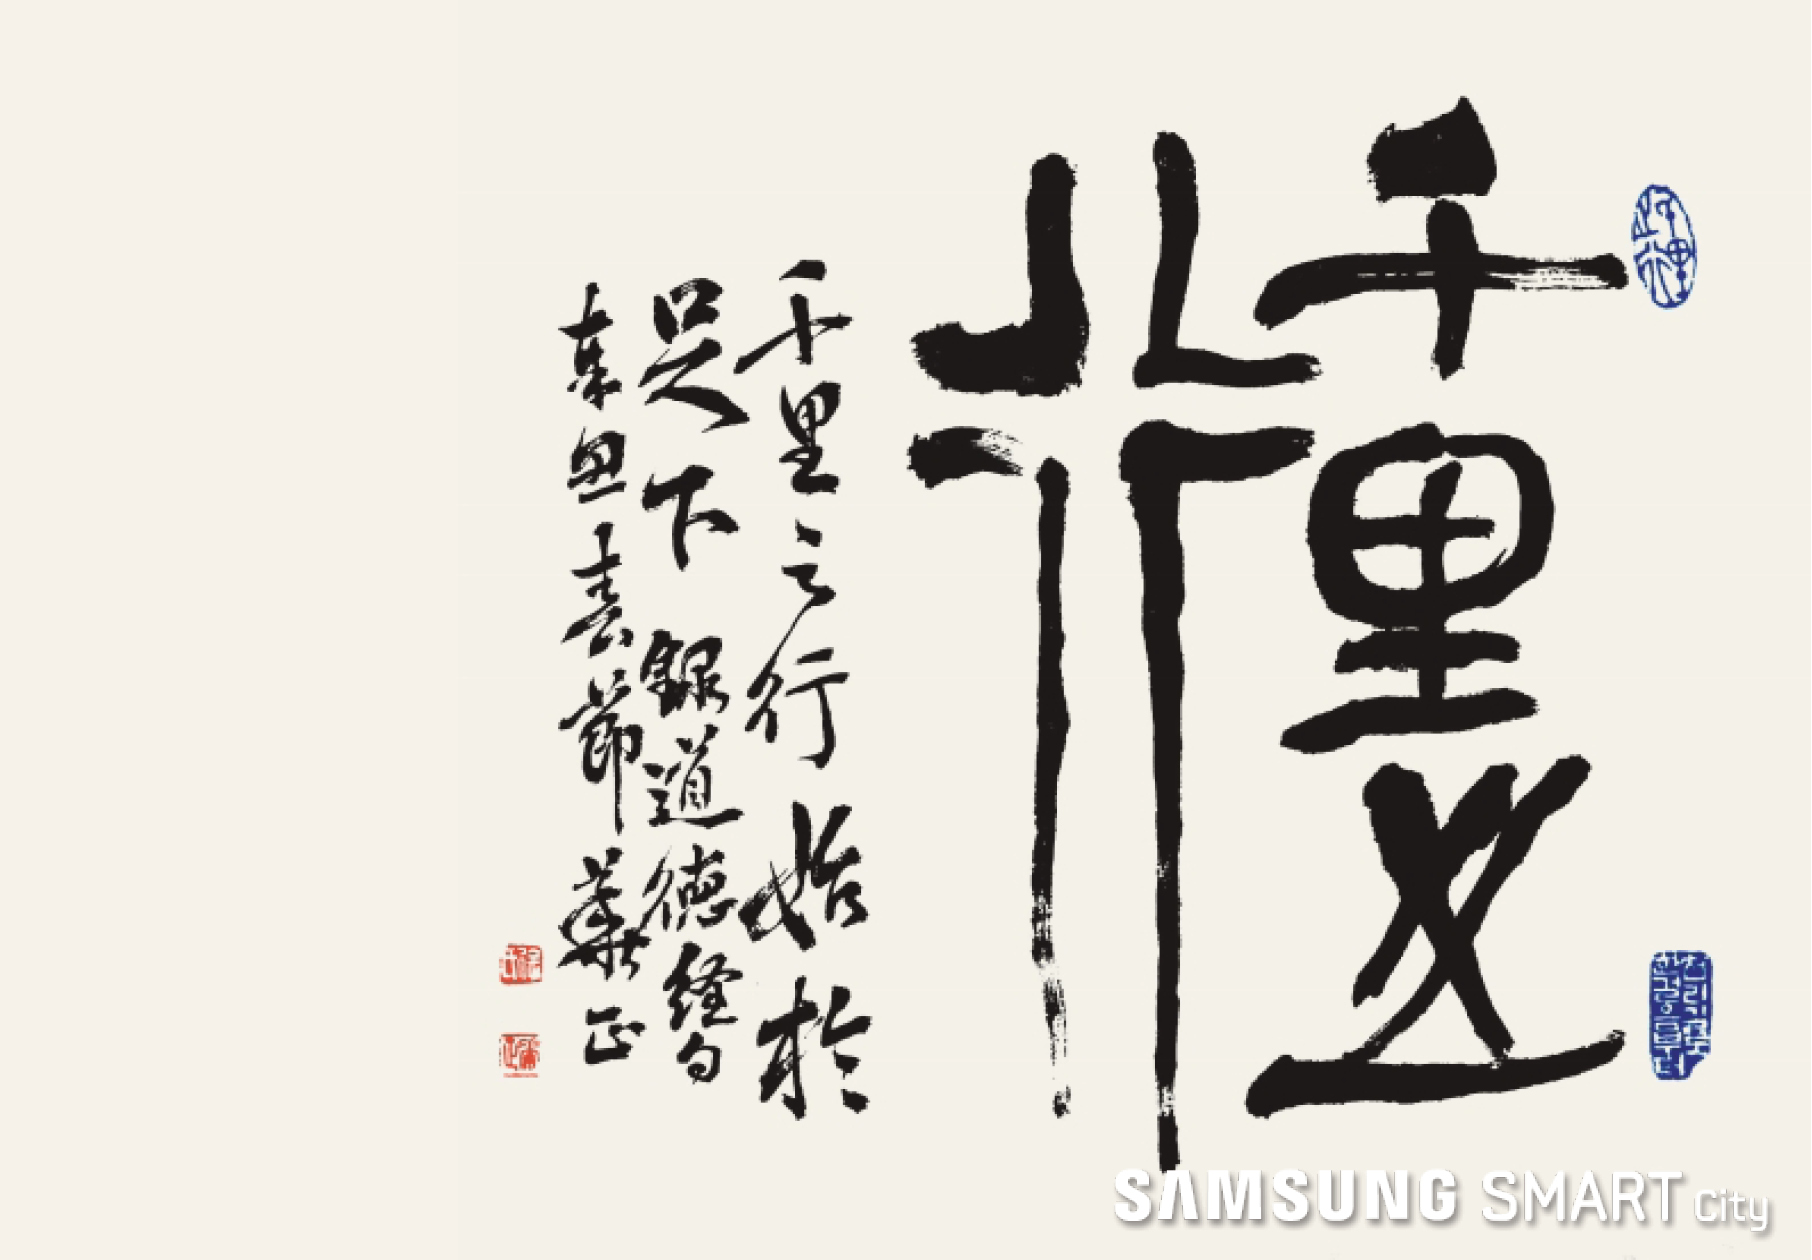 千里之
行
千里之行始於
足下 録道德經句
節 正
SAMSUNG SMART City